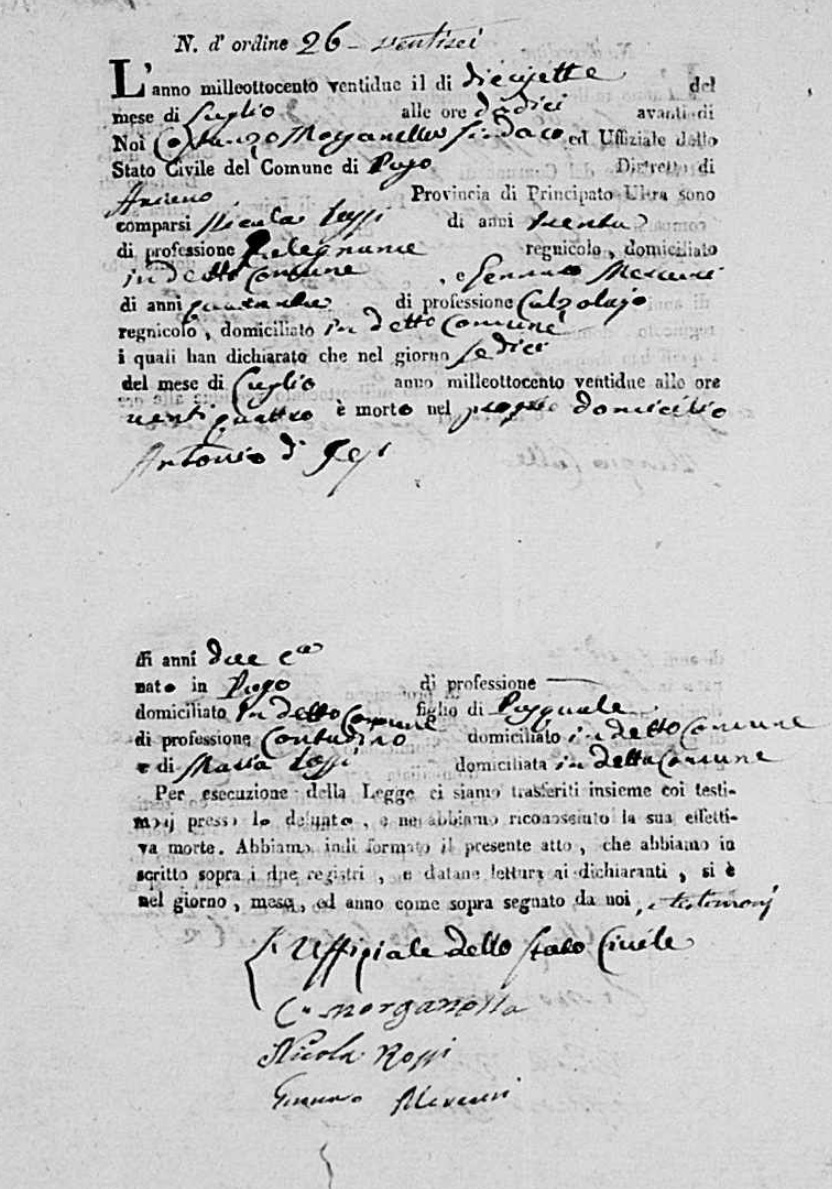 N. d' ordine 26 - ventisei
L'anno milleottocento ventidue il di diecisette del
mese di Luglio alle ore dodici avanti di
Noi Costanzo Morganella Sindaco ed Uffiziale dello
Stato Civile del Comune di Pago Distretto di
Provincia di Principato Ultra sono
comparsi Nicola Rossi di anni trenta
di professione Falegname regnicolo, domiciliato
in detto Comune, e Gennaro
di anni quaranta di professione Calzolajo
regnicolo, domiciliato in detto Comune
i quali han dichiarato che nel giorno sedici
del mese di Luglio anno milleottocento ventidue alle ore
ventiquattro è morto nel proprio domicilio
Antonio di
di anni due
nato in Pago di professione —
domiciliato in detto Comune figlio di Pasquale
di professione Contadino domiciliato in detto Comune
e di Maria Rossi domiciliata in detto Comune
Per esecuzione della Legge ci siamo trasferiti insieme coi testi-
monj presso lo defunto, e ne abbiamo riconosciuto la sua effetti-
va morte. Abbiamo indi formato il presente atto, che abbiamo in
scritto sopra i due registri, e datane lettura ai dichiaranti, si è
nel giorno, mese, ed anno come sopra segnato da noi, e testimonj
L'Uffiziale dello Stato Civile
Morganella
Nicola Rossi
Gennaro